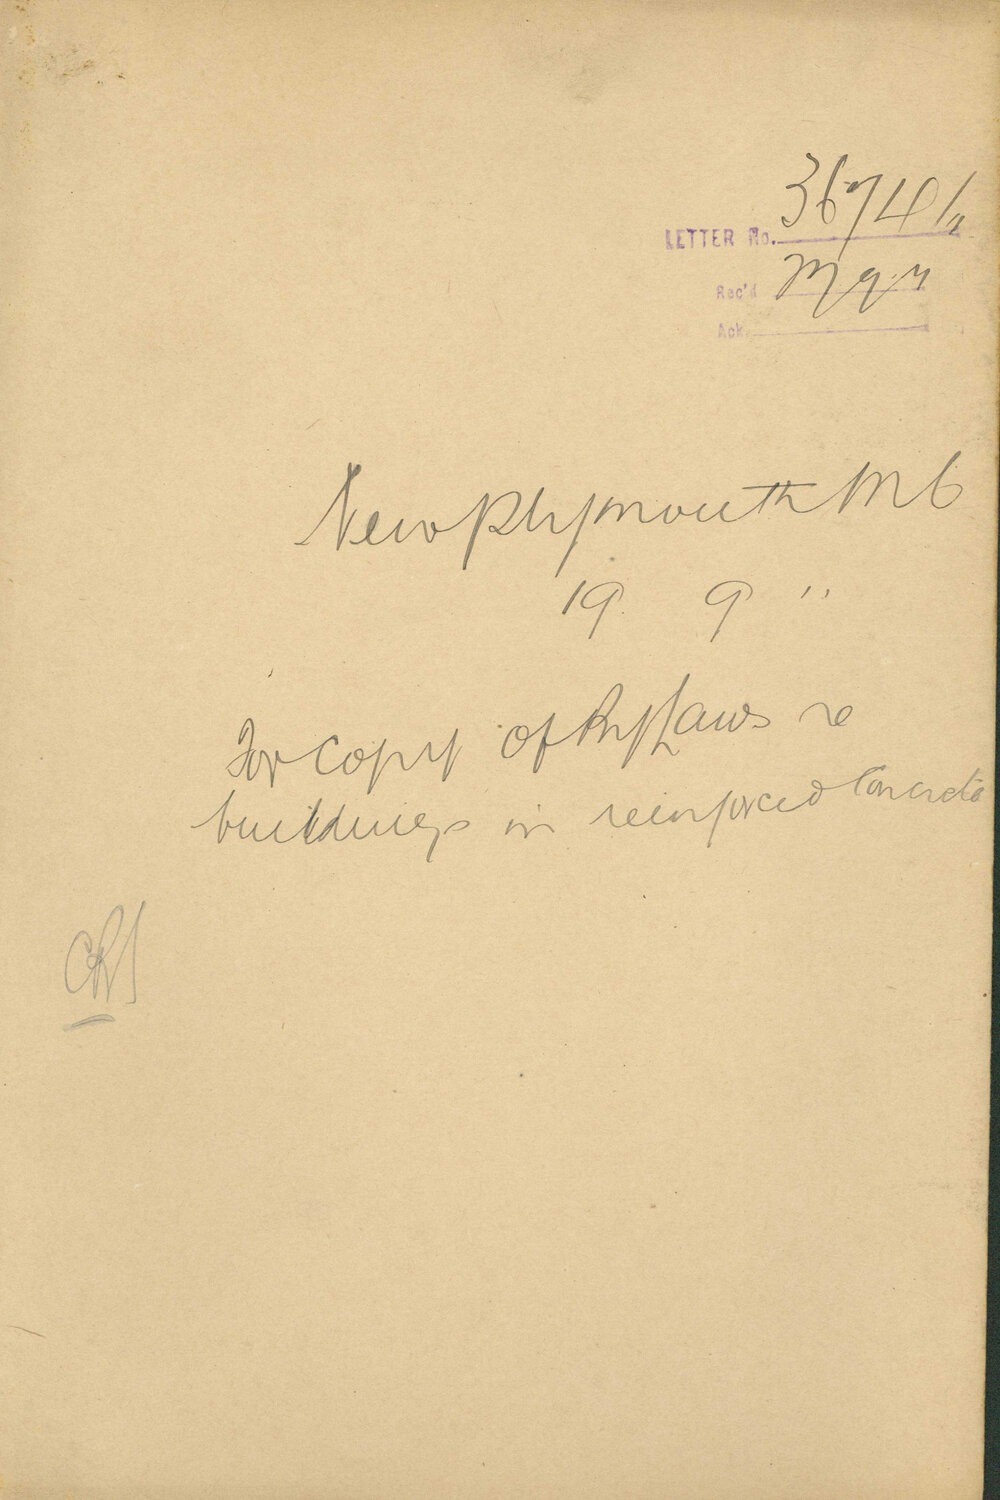 LETTER No. 3674/11
Rec'd
Ack.
New Plymouth M C
19 9 11
For copy of By Laws re
buildings in reinforced Concrete